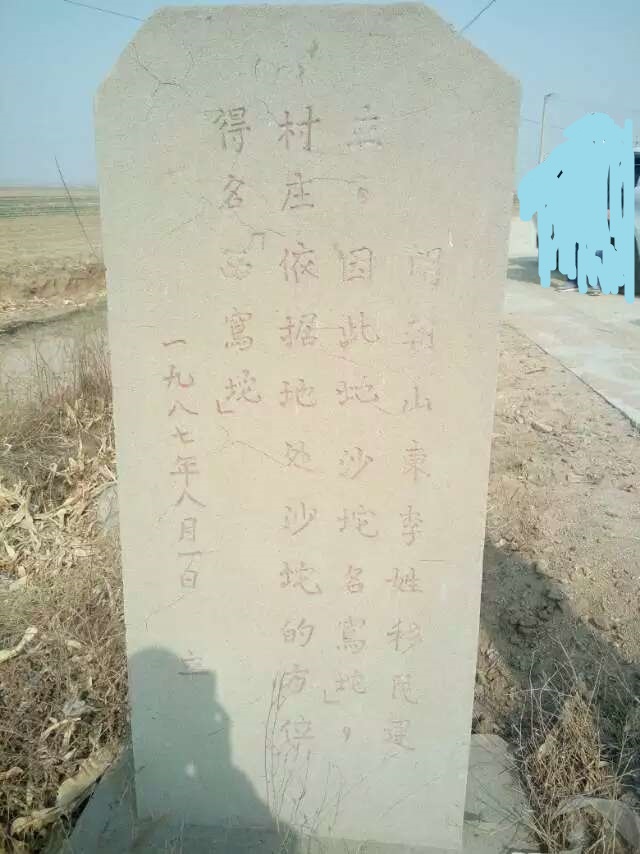 明朝山东李姓移民建
立。因此地沙坨名窵坨」，
村庄依据地处沙坨的方位
得名「西窵坨」
一九八七年八月一日 立